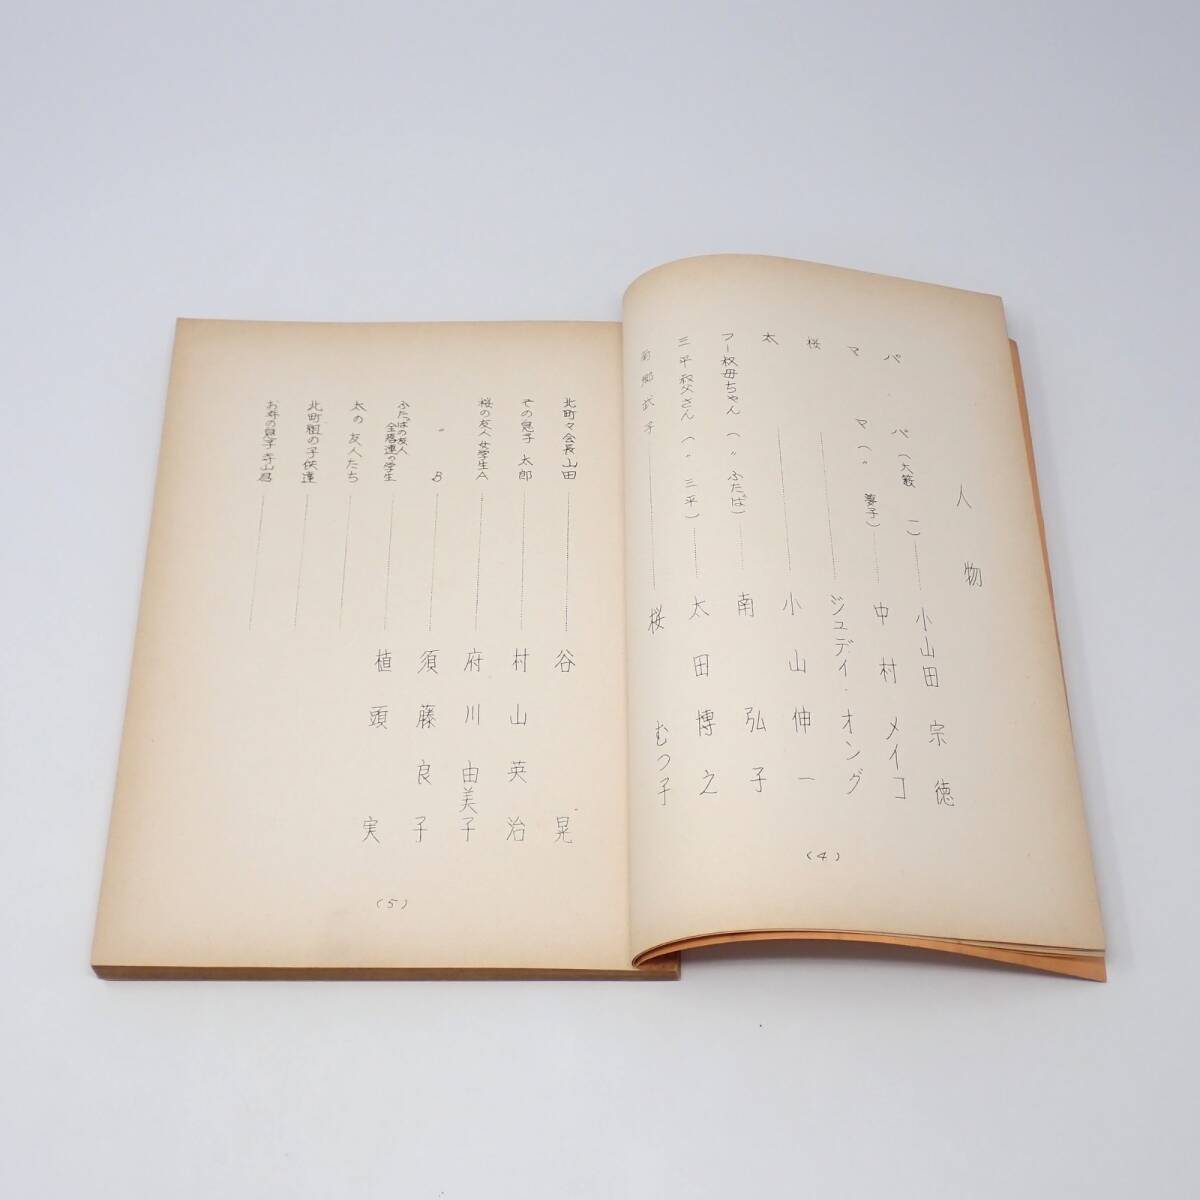 人物
パパ(大籔 一)……小山田宗徳
ママ(〃 夢子)……中村メイコ
桜……ジュディ・オング
太……小山伸一
フー叔母ちゃん(〃 ふたば)……南弘子
三平叔父さん(〃 三平)……太田博之
南郷衣子……桜むつ子
(4)
北町々会長山田……谷晃
その息子 太郎……村山英治
桜の友人 女学生A……府川由美子
〃 B……須藤良子
ふたばの友人 全落連の学生……植頭実
太の友人たち……
北町組の子供達……
お寺の息子 寺山君……
(5)